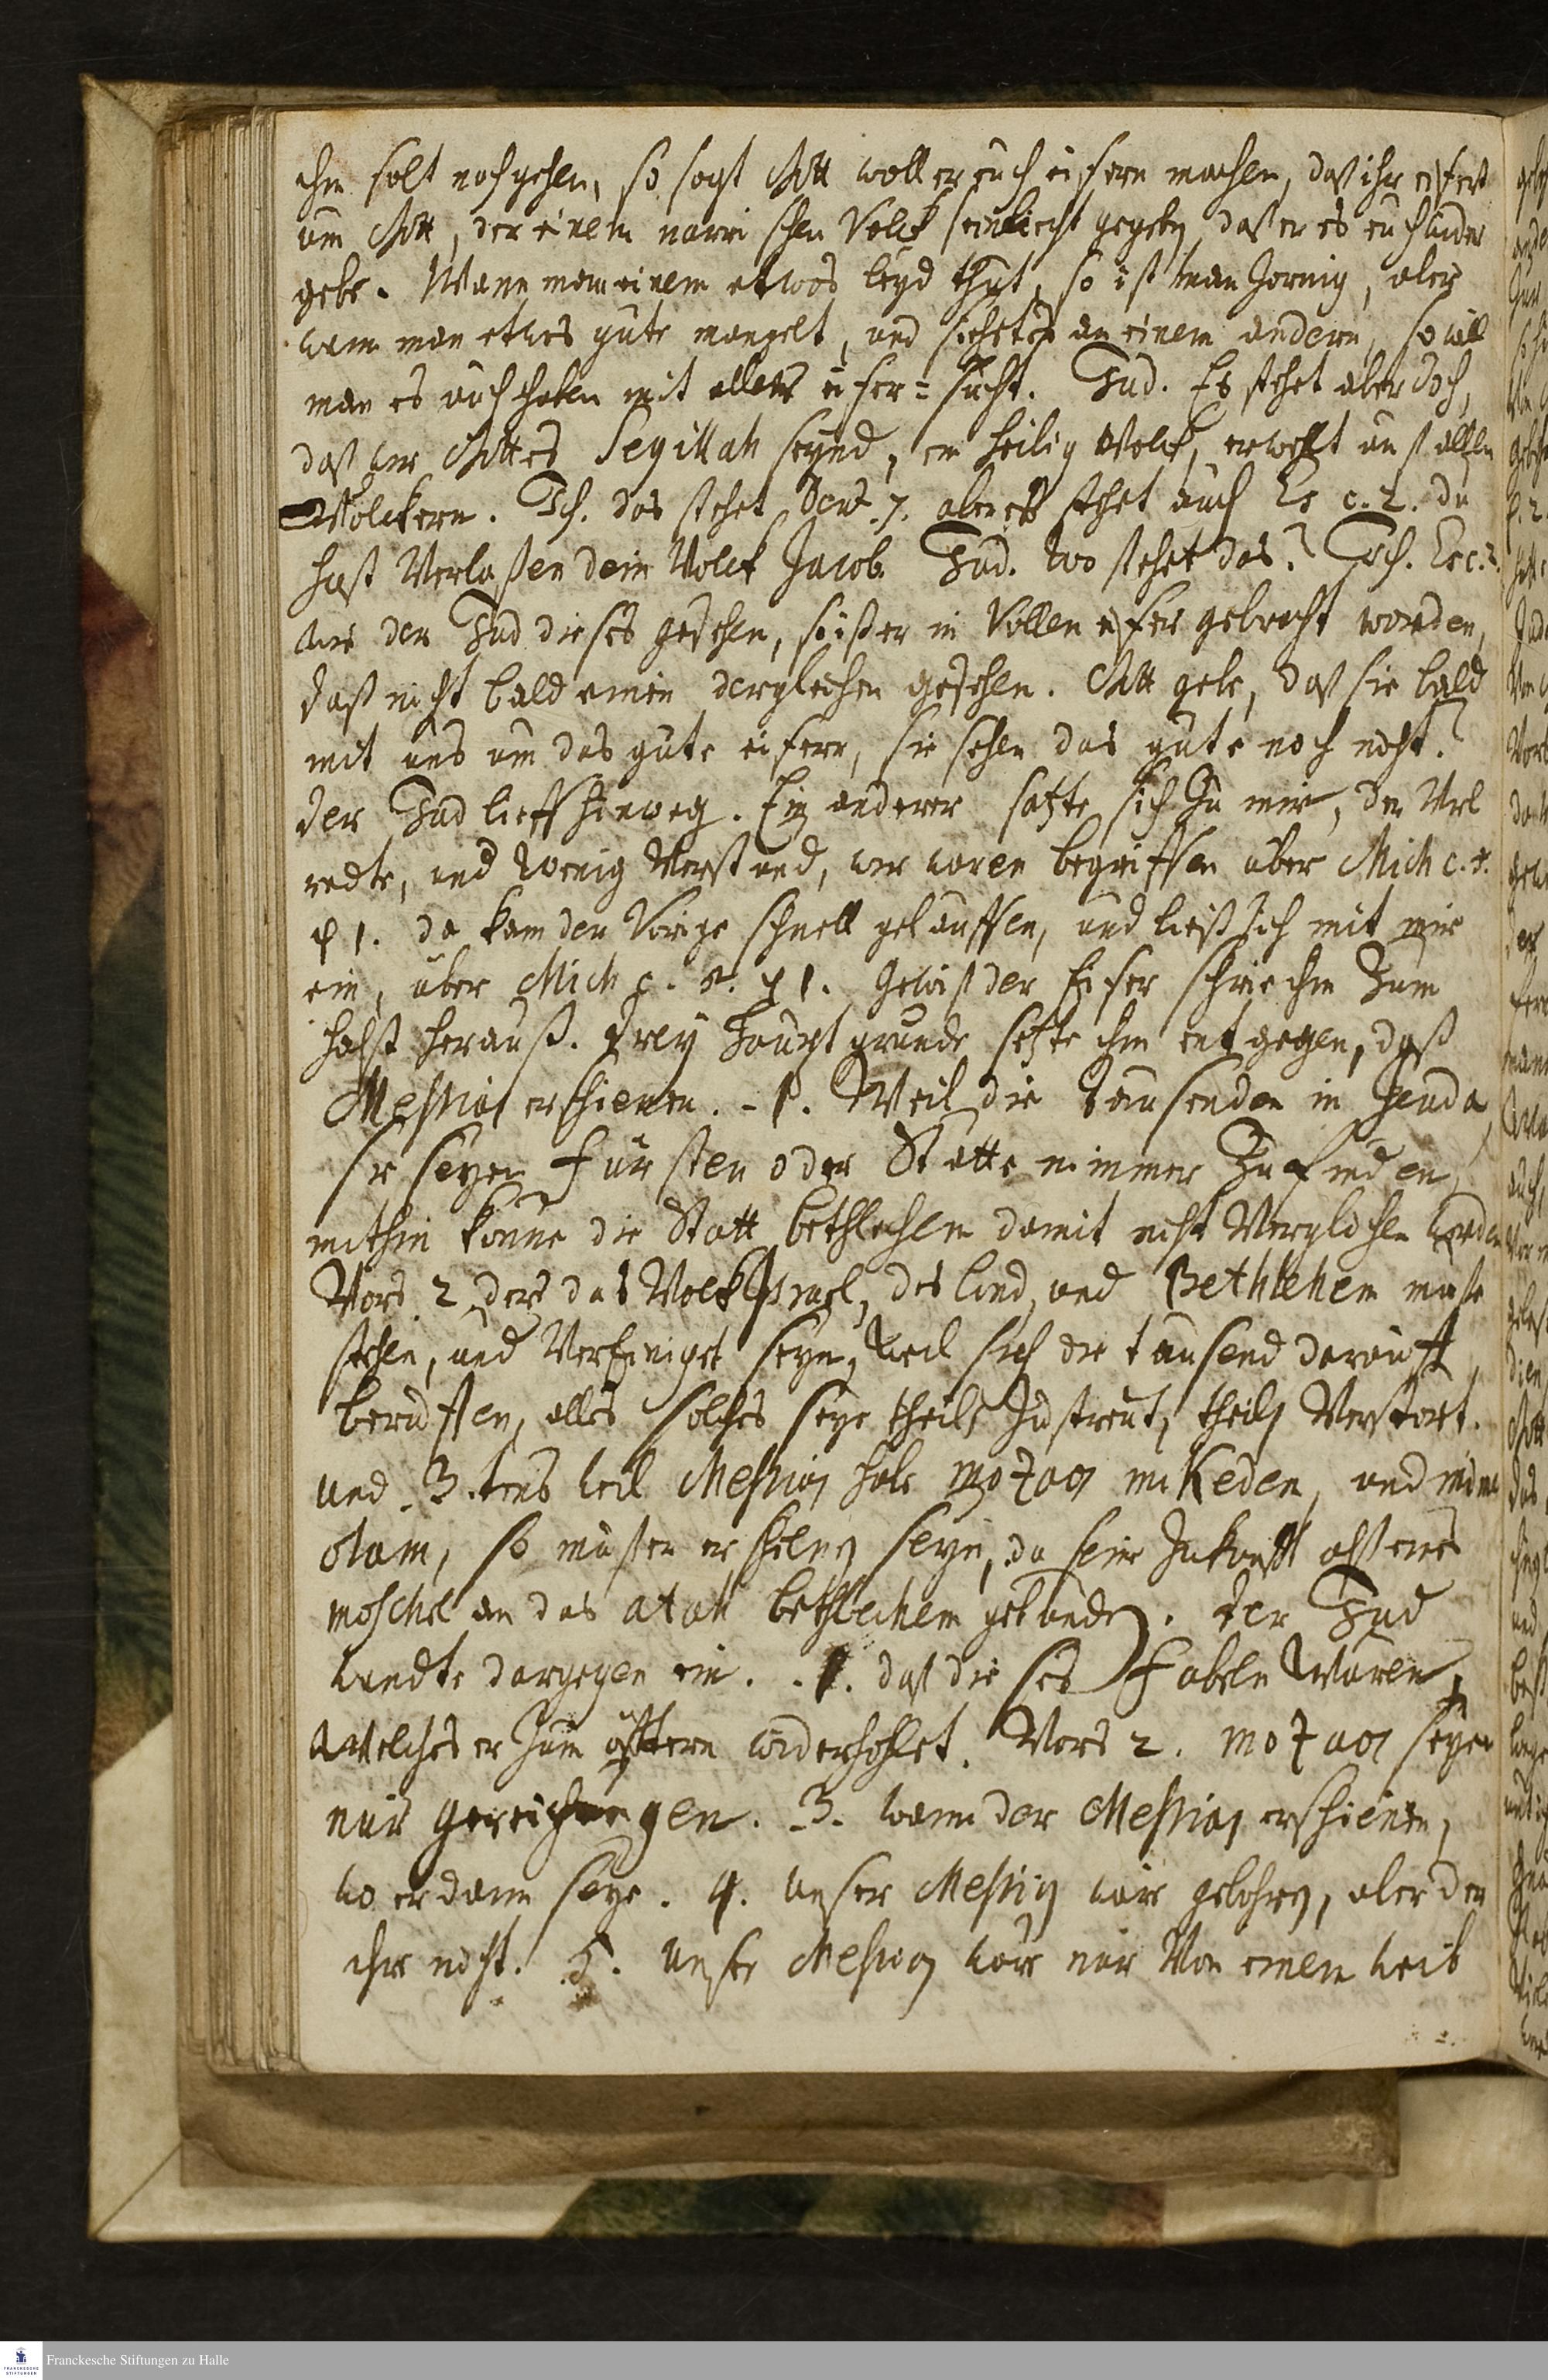 ihm solt nachgehen, so sagt Gott woll er euch eifern machen, daß ihr eifert
um Gott, der einem narrischen Volck sein liecht gegeben, daß er es euch wider
gebe. Wann man einem etwas leyd thut, so ist man zornig, aber
wann man etwas gute mangelt, und siehet es an einem andern, so will
man es auch haben mit aller eifer-sucht. Jud. Es stehet aber doch,
daß wir Gottes Segillah seynd, ein heilig Volck, erwehlt auß allen
Völckern. Ich. das stehet Deut. 7. aber es stehet auch Es c. 2. du
hast Verlaßen dein Volck Jacob. Jud. wo stehet das? Ich. Es c. 2.
wie der Jud dieses gesehen, so ist er in Vollen eifer gebracht worden,
daß nicht bald einen dergleichen gesehen. Gott gebe, daß sie bald
mit uns um das gute eifern, sie sehen das gute noch nicht.
der Jud lieff hinweg. Ein anderer satzte sich zu mir, der Viel
redte, und wenig Verstund, wir waren begriffen über Mich c. 5.
v 1. da kam der Vorige schnell gelauffen, und ließ sich mit mir
ein, über Mich c. 5. v 1. Gewiß der Eifer schrie ihm zum
halß herauß. Drey Hauptgrunde setzte ihm entgegen, daß
Messias erschienen. - 1. Weil die Tausenden in Juda,
sie seyen Fürsten oder Stätte nimmer zu finden,
mithin könne die Statt bethlehem damit nicht Verglichen werden
Vors 2 ders das Volck Israel, das land, und Bethlehem müste
stehen, und Vereiniget seyn, weil sich die tausend darauff
berufften, alles solches seye theils zustreut, theils Verstört.
und 3.tens weil Messias habe mozaos mikedem, und mime
olam, so müste er erschienen seyn, da seine Zukunfft alß eines
moschel an das atah bethlechem gebunden. der Jud
wandte dargegen ein. - 1. daß dieses Fabeln wären,
welches er zum öfftern widerhohlet. Vors 2. mozaos seyen
nur gereichungen. 3. wann der Messias erschienen,
wo er dann seye. 4. unser Messias wäre gebohren, aber der
ihre nicht. 5. unser Messias wäre nur Von einem weib
Franckesche Stiftungen zu Halle